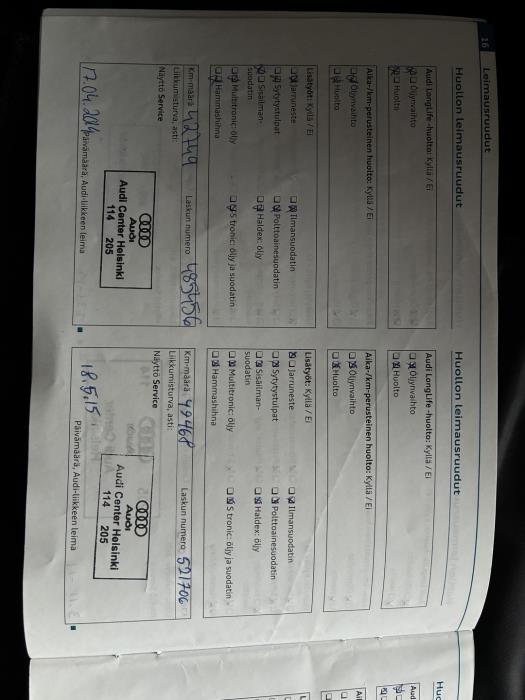 16 Leimausruudut
Huollon leimausruudut
Audi LongLife -huolto: Kyllä / Ei
Öljynvaihto
Huolto
Aika-/km-perusteinen huolto: Kyllä / Ei
Öljynvaihto
Huolto
Lisätyöt: Kyllä / Ei
Jarruneste Ilmansuodatin
Sytytystulpat Polttoainesuodatin
Sisäilman- Haldex: öljy
suodatin
Multitronic: öljy S tronic: öljy ja suodatin
Hammashihna
Km-määrä 42749 Laskun numero 485456
Liikkumisturva, asti:
Näyttö Service
Audi
Audi Center Helsinki
114 205
17.04.2014
Päivämäärä, Audi-liikkeen leima
Huollon leimausruudut
Audi LongLife -huolto: Kyllä / Ei
Öljynvaihto
Huolto
Aika-/km-perusteinen huolto: Kyllä / Ei
Öljynvaihto
Huolto
Lisätyöt: Kyllä / Ei
Jarruneste Ilmansuodatin
Sytytystulpat Polttoainesuodatin
Sisäilman- Haldex: öljy
suodatin
Multitronic: öljy S tronic: öljy ja suodatin
Hammashihna
Km-määrä 49468 Laskun numero 521706
Liikkumisturva, asti:
Näyttö Service
Audi
Audi Center Helsinki
114 205
18.5.15
Päivämäärä, Audi-liikkeen leima